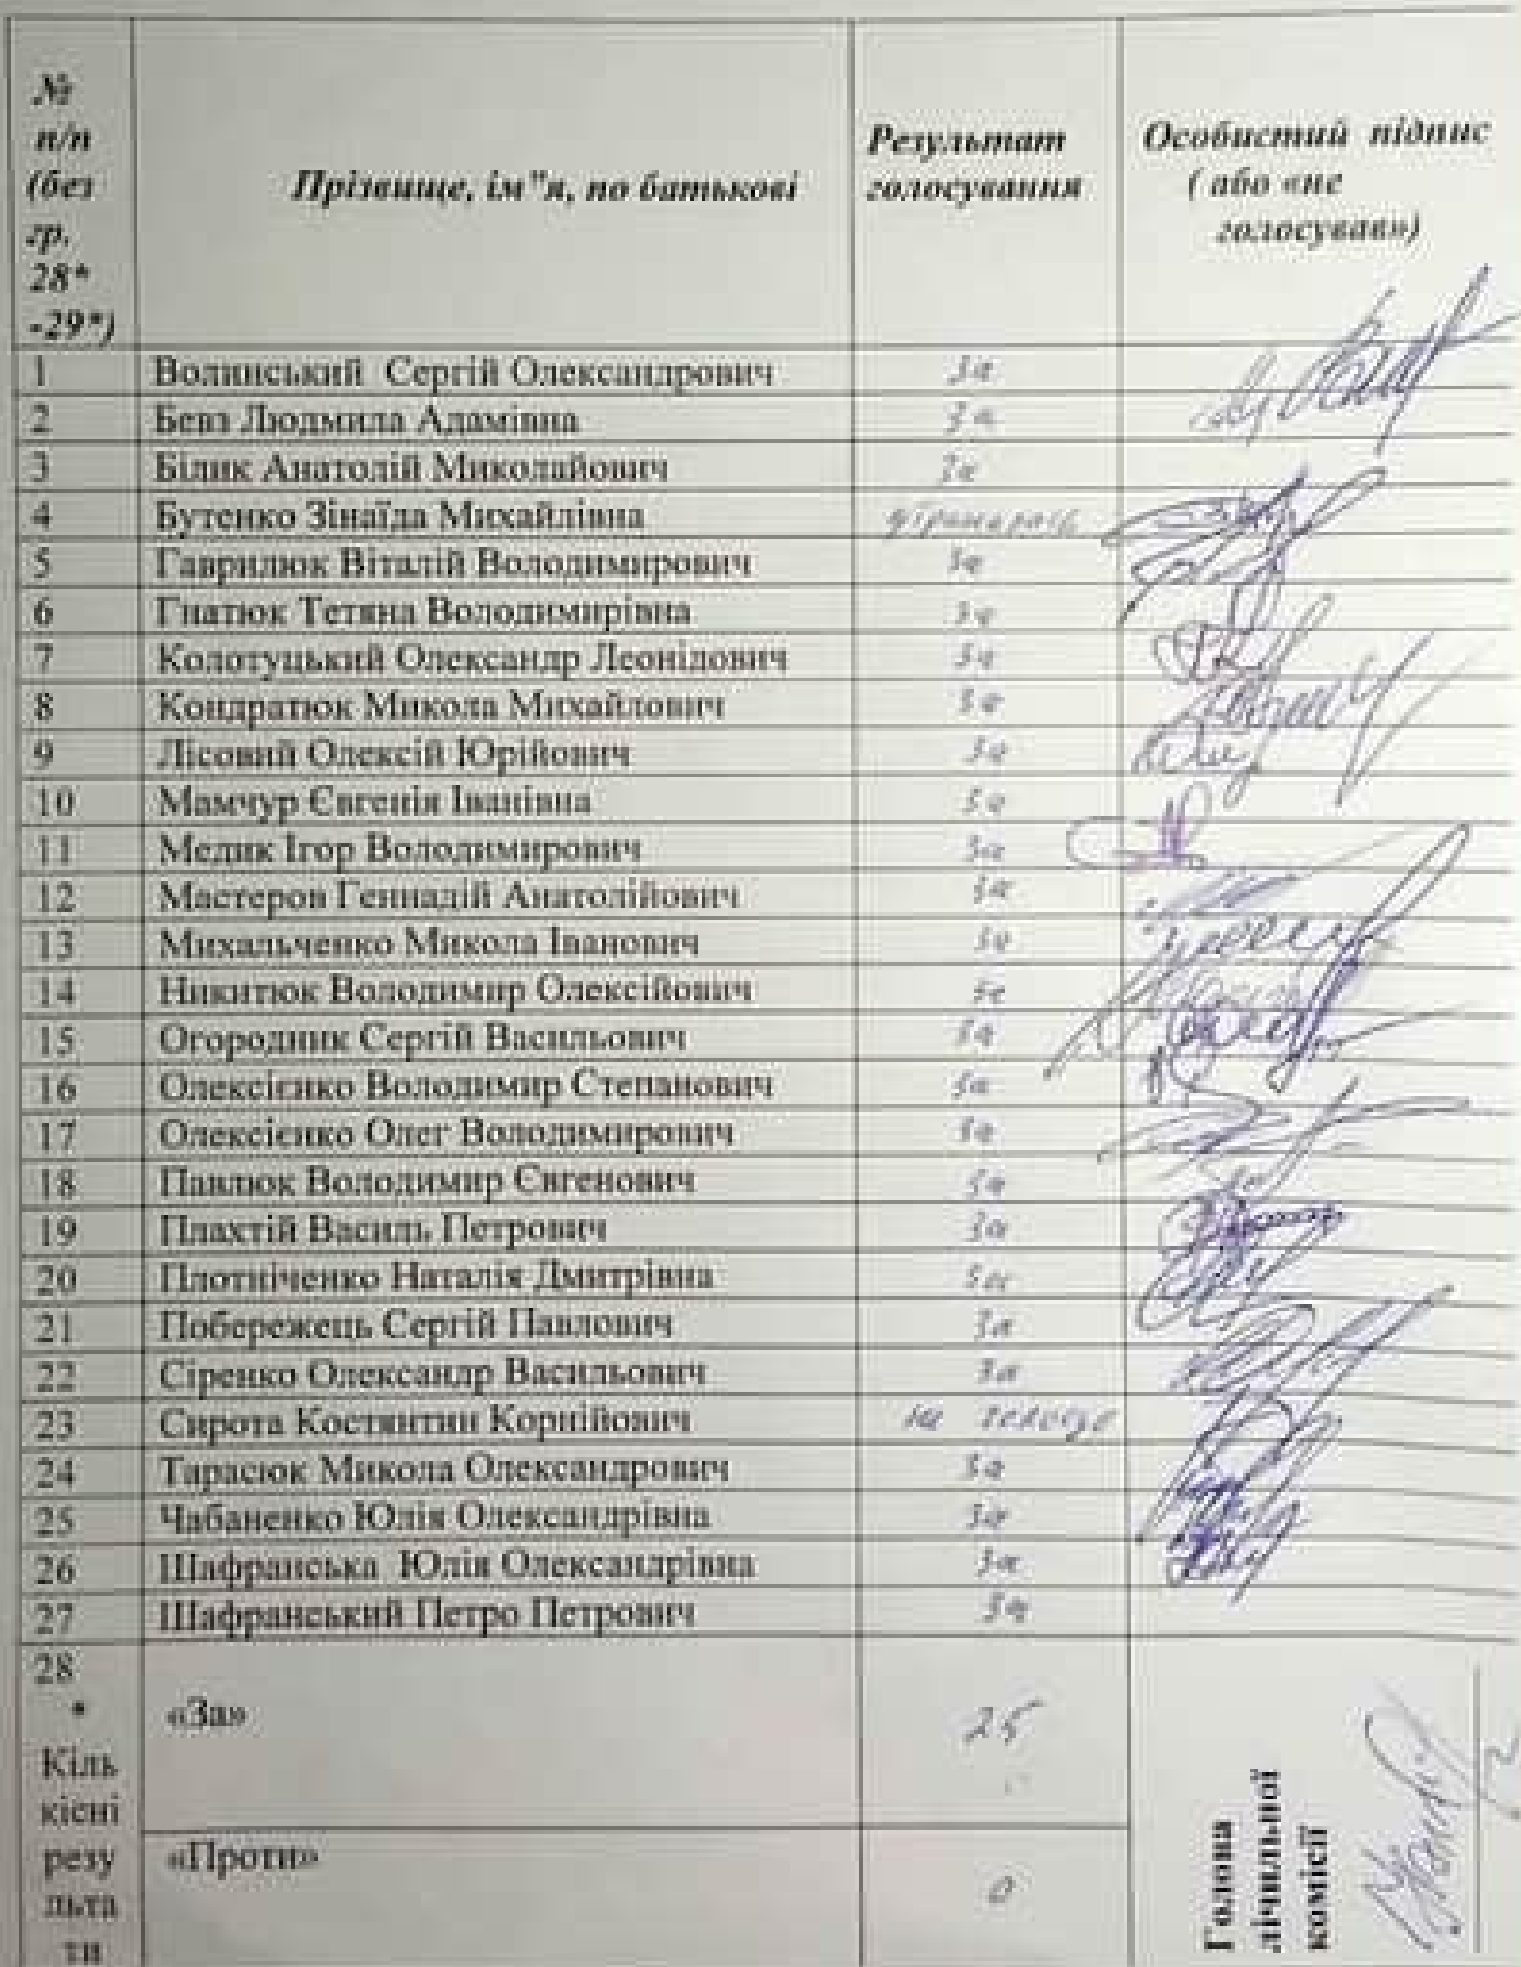 №
п/п
(без
гр.
28*
-29*)
Прізвище, ім"я, по батькові
Результат
голосування
Особистий підпис
( або «не
голосував»)
1 Волинський Сергій Олександрович за
2 Бевз Людмила Адамівна за
3 Білик Анатолій Миколайович за
4 Бутенко Зінаїда Михайлівна
5 Гаврилюк Віталій Володимирович за
6 Гнатюк Тетяна Володимирівна за
7 Колотуцький Олександр Леонідович за
8 Кондратюк Микола Михайлович за
9 Лісовий Олексій Юрійович за
10 Мамчур Євгенія Іванівна за
11 Медик Ігор Володимирович за
12 Мастеров Геннадій Анатолійович за
13 Михальченко Микола Іванович за
14 Никитюк Володимир Олексійович за
15 Огородник Сергій Васильович за
16 Олексієнко Володимир Степанович за
17 Олексієнко Олег Володимирович за
18 Павлюк Володимир Євгенович за
19 Плахтій Василь Петрович за
20 Плотніченко Наталія Дмитрівна за
21 Побережець Сергій Павлович за
22 Сіренко Олександр Васильович за
23 Сирота Костянтин Корнійович
24 Тарасюк Микола Олександрович за
25 Чабаненко Юлія Олександрівна за
26 Шафранська Юлія Олександрівна за
27 Шафранський Петро Петрович за
28
*
Кіль
кісні
резу
льта
ти
«За» 25
«Проти» 0
Голова
лічильної
комісії